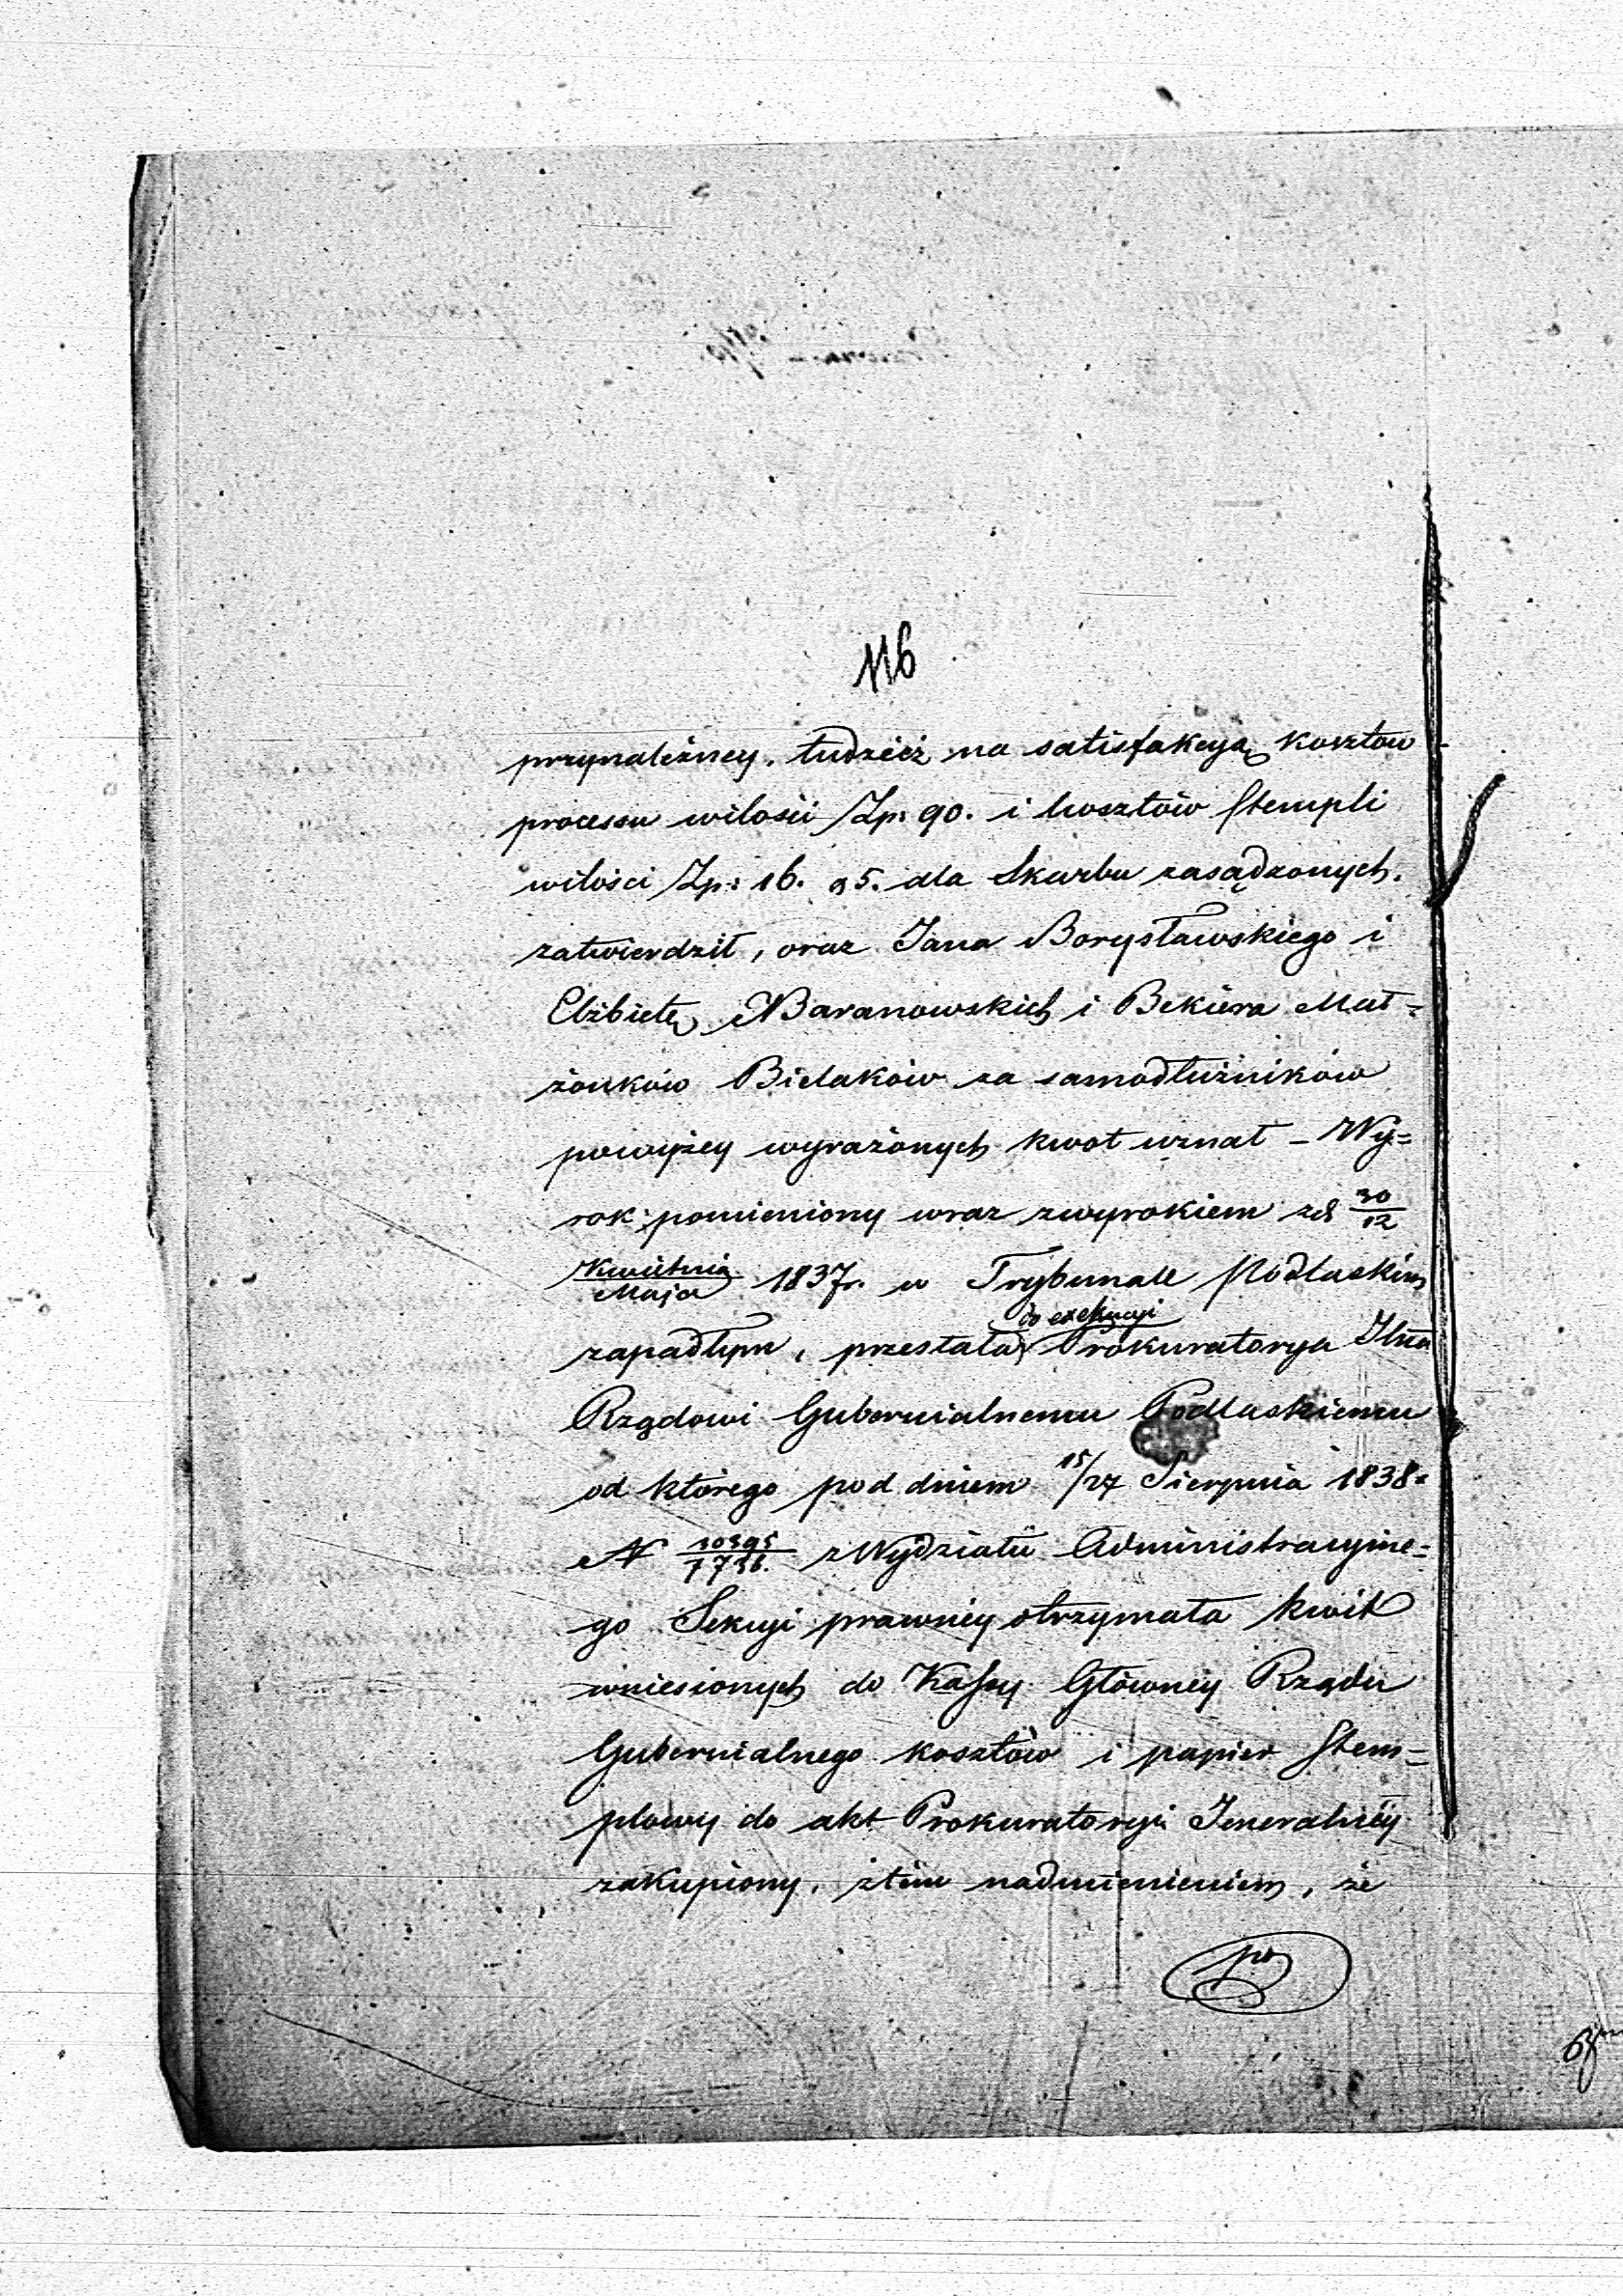 116
przynależney, tudzież na satisfakcyą kosztów
processu wilości Zp: 90. i kosztów stempli
wilości Zp: 16. g 5. dla Skarbu zasądzonych.
zatwierdził, oraz Jana Borysławskiego i
Elżbietę Baranowskich i Bekiera Mał=
żonków Bielaków za samodłużników
powyżey wyrażonych kwot uznał – Wy=
rok pomieniony wraz zwyrokiem zd 30/12
Kwietnia/Maja 1837r. w Trybunale Podlaskim
do exekucyi
zapadłym, przesłała Prokuratorya Jlna
Rządowi Gubernialnemu Podlaskiemu
od którego pod dniem 15/27 Sierpnia 1838=
N 10395/7736. z Wydziału Administracyjne=
go Sekcyi prawney otrzymała kwit
wniesionych do Kassy Główney Rządu
Gubernialnego kosztów i papier stem=
plowy do akt Prokuratoryi Jeneralney
zakupiony, ztém nadmienieniem, że